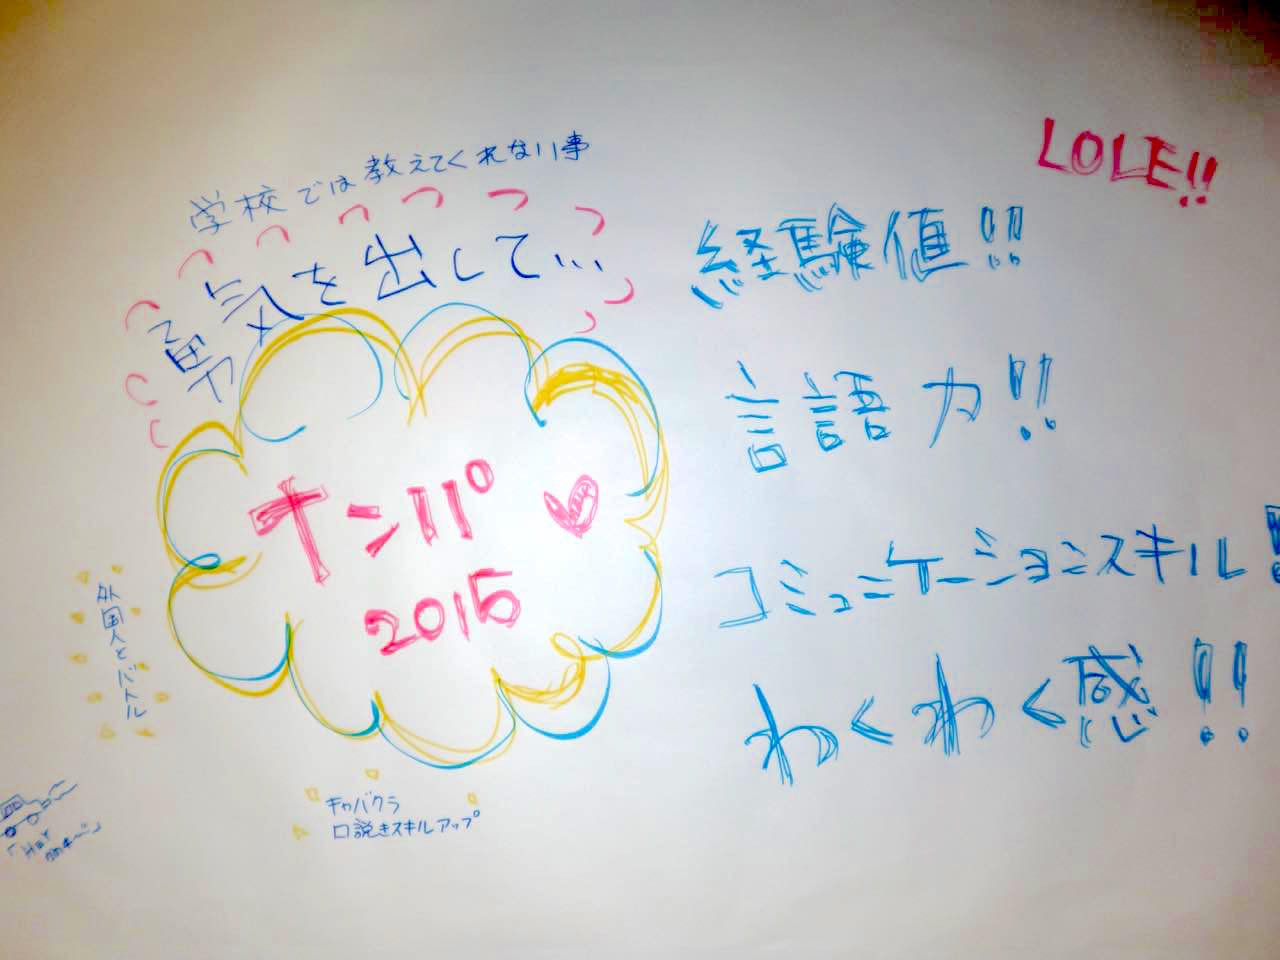 学校では教えてくれない事
勇気を出して...
ナンパ♡
2015
外国人とバトル
キャバクラ
口説きスキルアップ
LOLE!!
経験値!!
言語力!!
コミュニケーションスキル!!
わくわく感!!